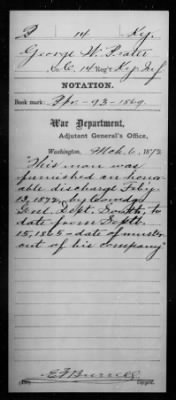 P 14 Ky.
George W. Prater
Co. C, 14 Reg't Ky. Inf
NOTATION.
Book mark:
War Department,
Adjutant General's Office,
Washington, Mch. 6, 1872
"This man was
furnished an honor-
able discharge Feb'y
13, 1872, by Comd'g
Genl. Dept. South, to
date from Sept.
15, 1865 - date of muster
out of his company"
Copyist.